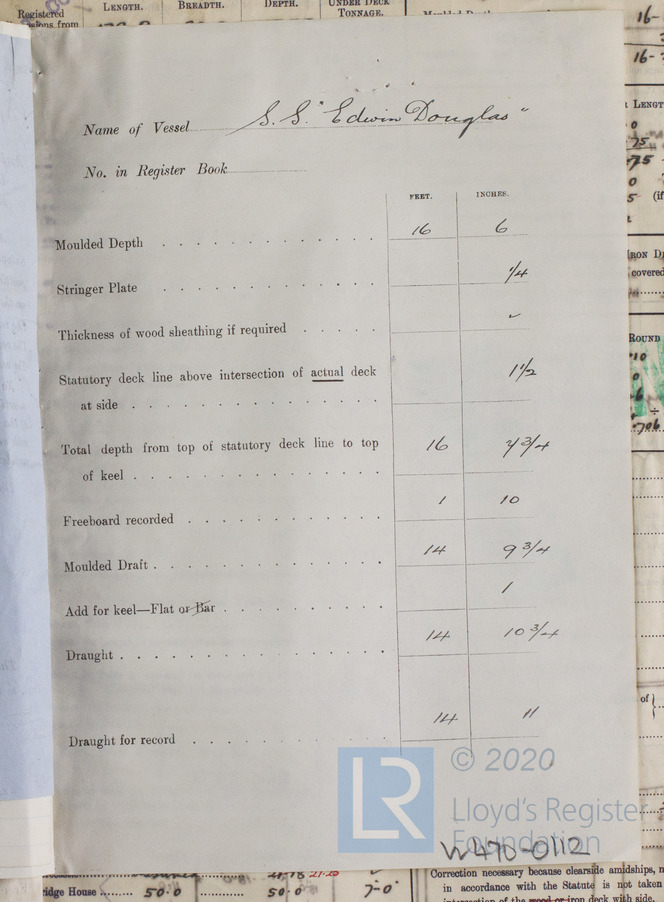 Registered LENGTH. BREADTH. DEPTH. UNDER DECK TONNAGE.
16-
16-
Name of Vessel S.S. "Edwin Douglas"
No. in Register Book
FEET. INCHES.
Moulded Depth 16 6
Stringer Plate 1/4
Thickness of wood sheathing if required ✓
Statutory deck line above intersection of actual deck
at side 1 1/2
Total depth from top of statutory deck line to top
of keel 16 7 3/4
Freeboard recorded 1 10
Moulded Draft 14 9 3/4
Add for keel—Flat or Bar 1
Draught 14 10 3/4
Draught for record 14 11
LR © 2020
Lloyd's Register
Foundation
W470-0112
ridge House 50.0 50.0 7-0
Correction necessary because clearside amidships,
in accordance with the Statute is not taken
iron deck with side.
LENGT
0
75
.75
0
5 (if
IRON D
covered
ROUND
.10
0
.706
of